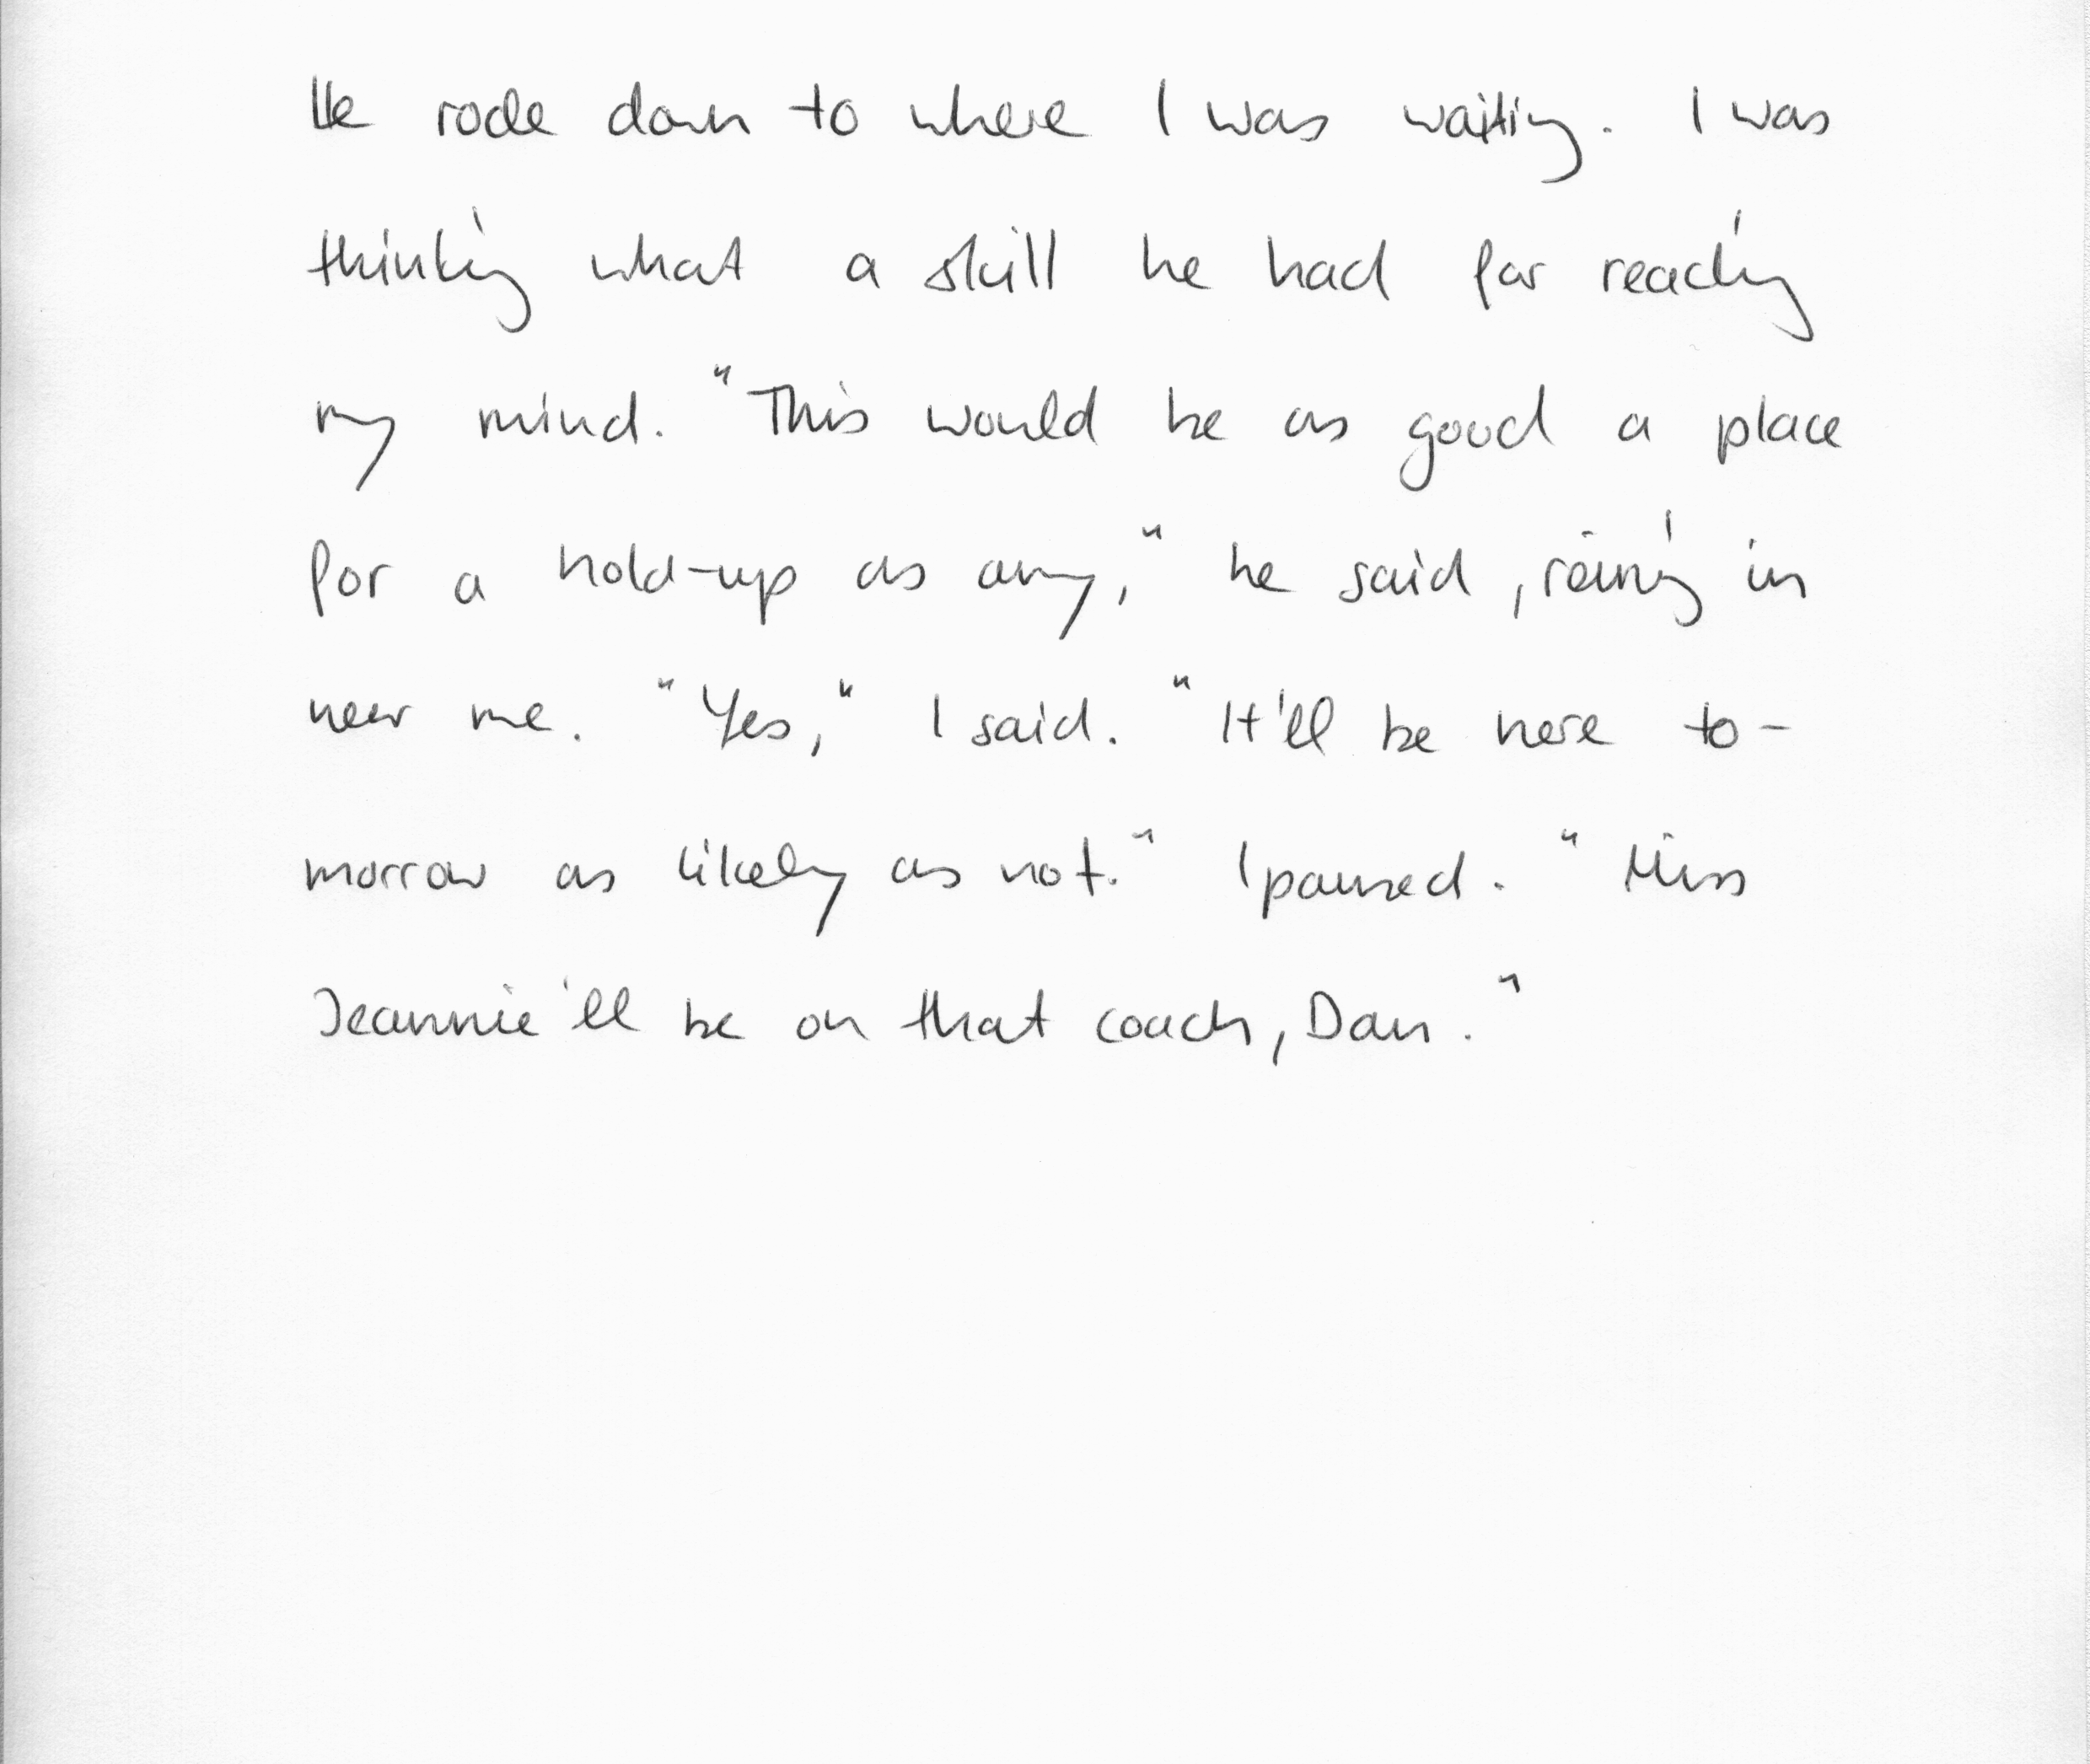 He rode down to where I was waiting. I was
thinking what a skill he had for reading
my mind. "This would be as good a place
for a hold-up as any," he said, reining in
near me. "Yes," I said. "It'll be here to-
morrow as likely as not." I paused. "Miss
Jeannie'll be on that coach, Dan."